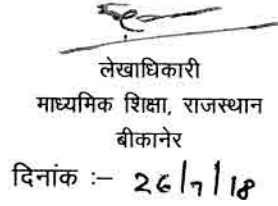 लेखाधिकारी
माध्यमिक शिक्षा, राजस्थान
बीकानेर
दिनांक :– 26/7/18